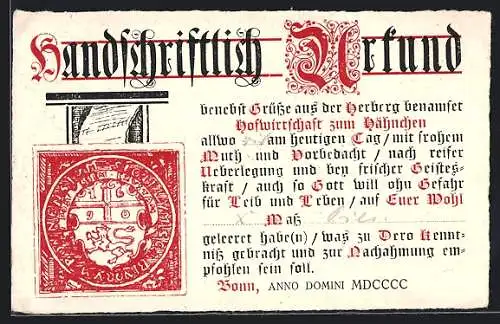 Handschriftlich Urkund
benebst Grüße aus der Herberg benamset
Hofwirtschaft zum Hähnchen
allwo am heutigen Tag / mit frohem
Muth und Vorbedacht / nach reifer
Ueberlegung und bey frischer Geistes-
kraft / auch so Gott will ohn Gefahr
für Leib und Leben / auf Euer Wohl
Maß
geleeret habe(n) / was zu Dero Kennt-
niß gebracht und zur Nachahmung em-
pfohlen sein soll.
Bonn, ANNO DOMINI MDCCCC